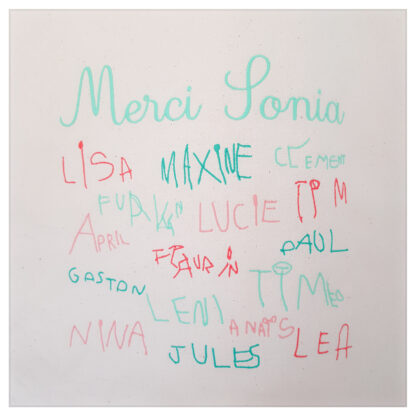 Merci Sonia
LISA MAXINE CLEMENT
FURKAN LUCIE TIM
APRIL
PAUL
GASTON TIMEO
LENI
NINA ANAÏS LEA
JULES